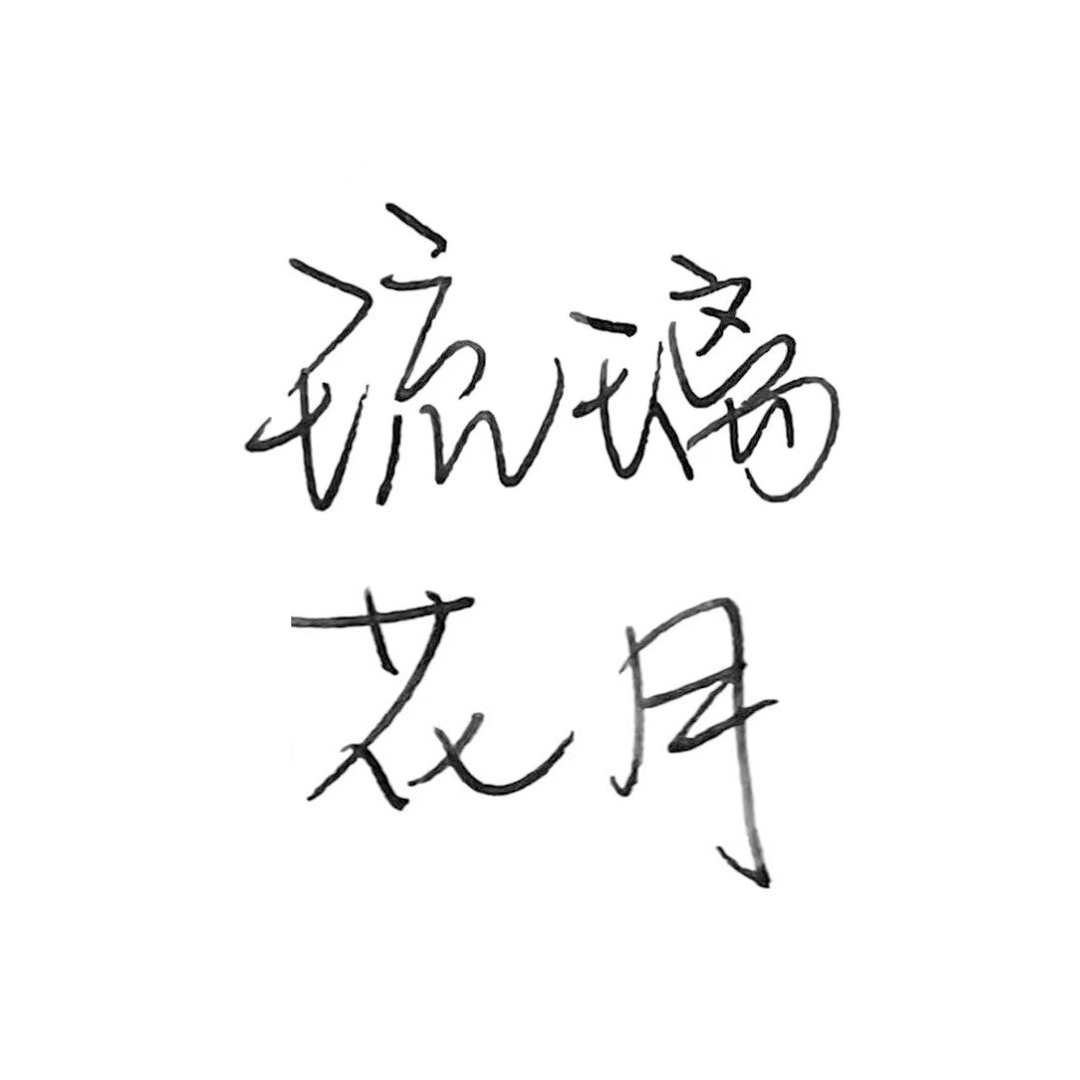 琉璃
花月